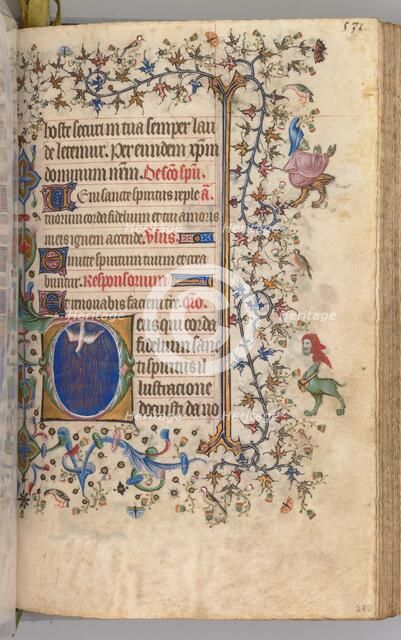 531.
hoste securi in tua semper lau
de letemur. Per eundem xp̄m
dominum nr̄m. De sc̄o sp̄u.
Veni sancte spiritus reple tuorum corda fidelium et tui amoris
meis ignem accende. Vſus.
Emitte spiritum tuum et crea
buntur. Responsorium
Et renovabis faciem t̄re. Or̄o.
Deus qui corda
fidelium sanc
ti spiritus il
lustracione
docuisti da no
280
heritage
Heritage